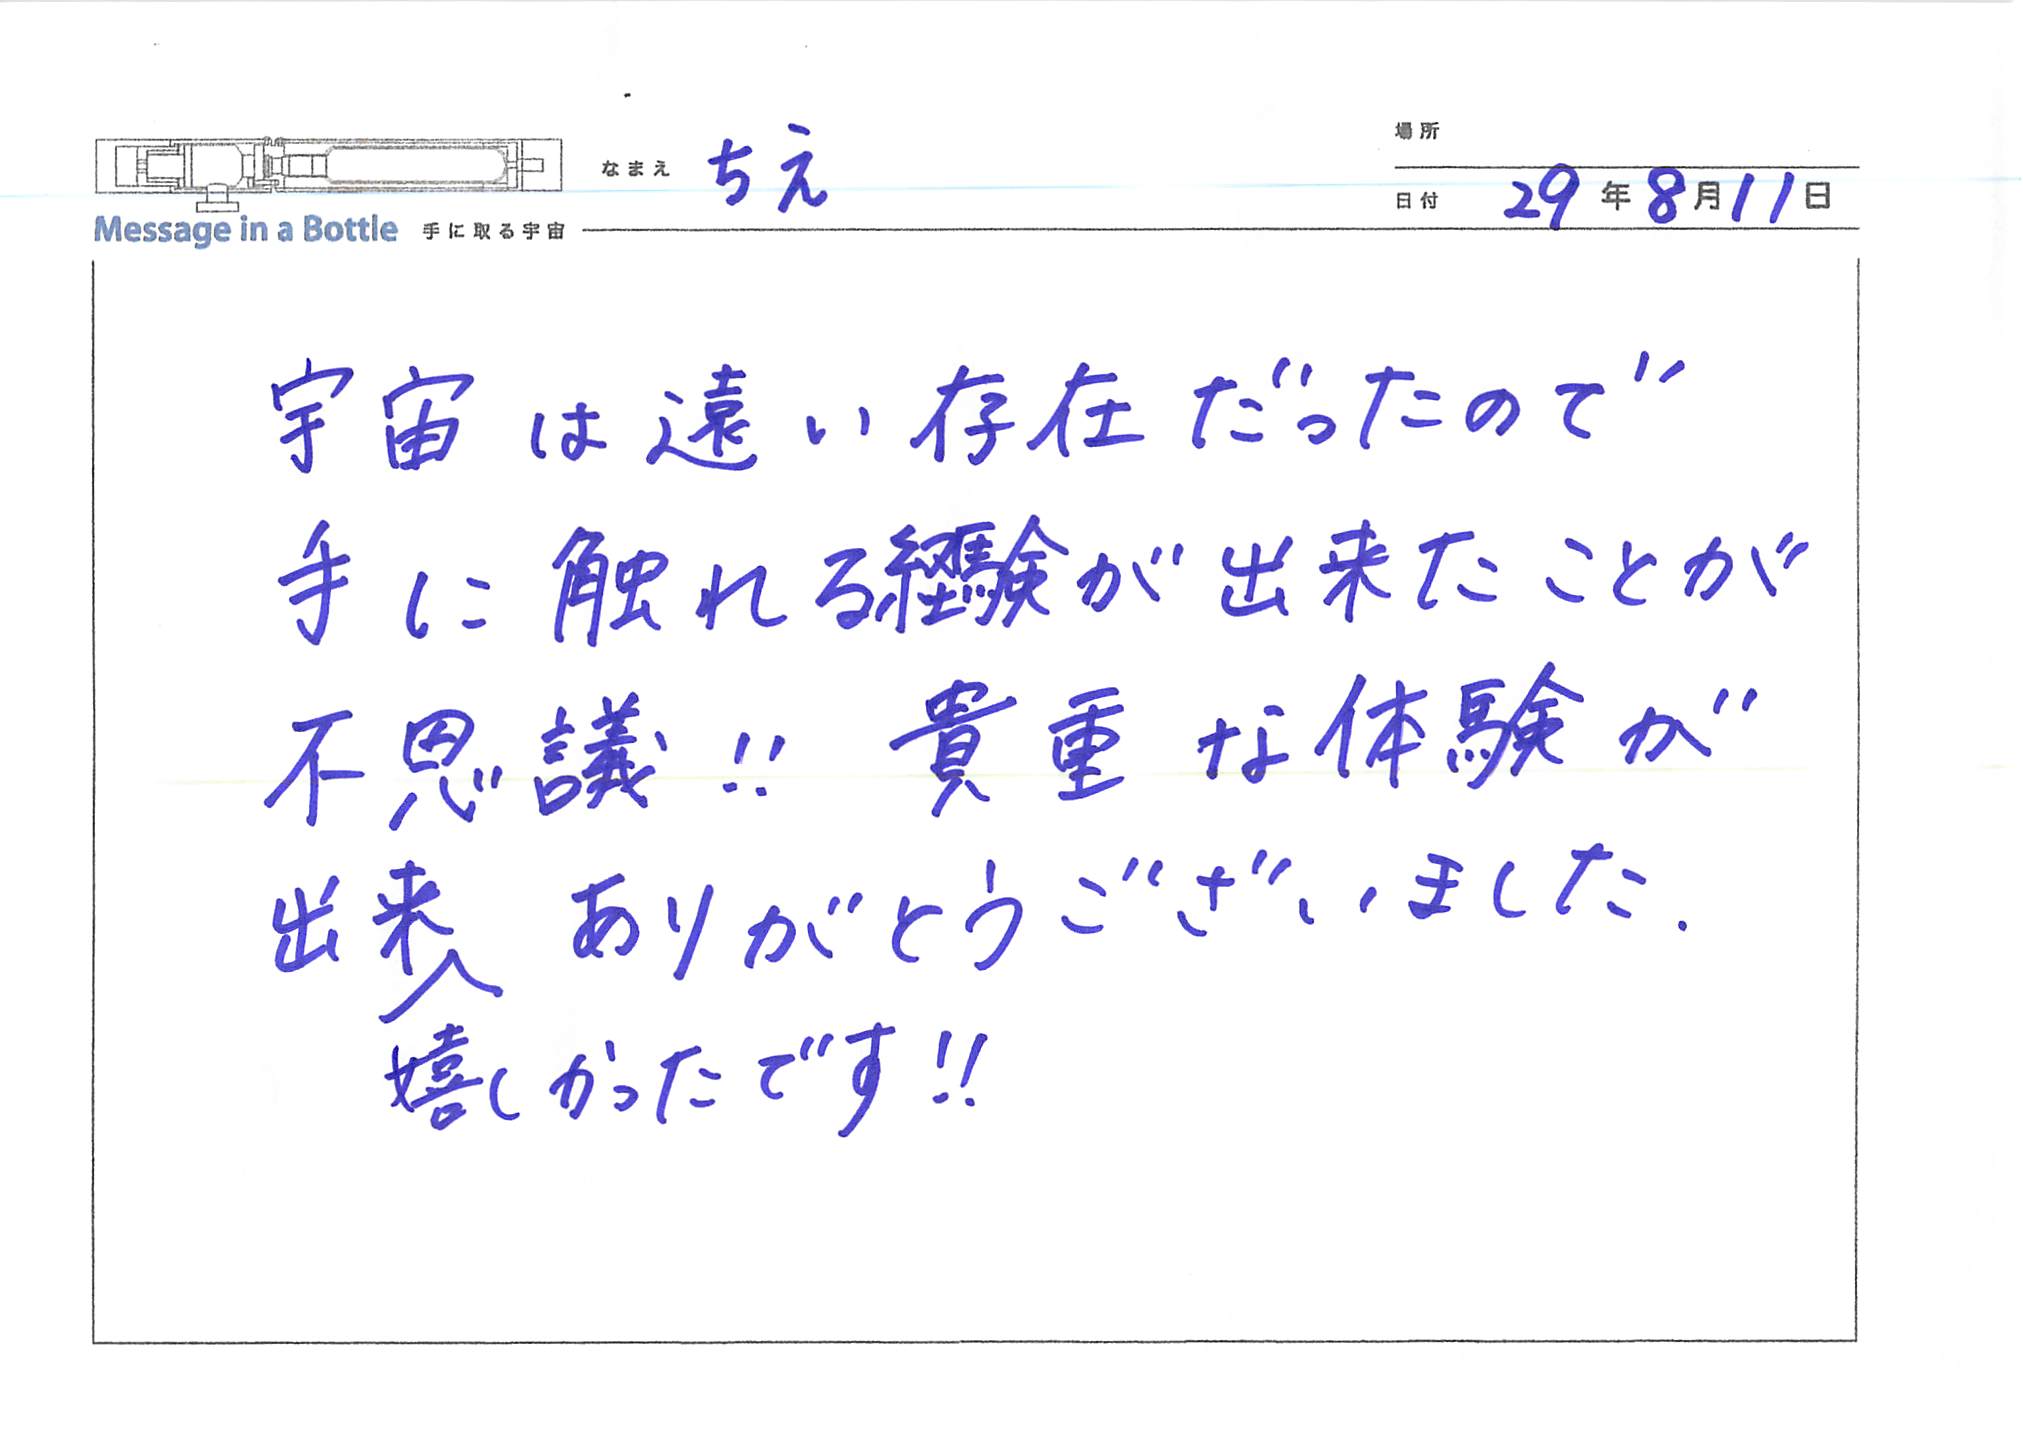 場所
なまえ ちえ
日付 29年8月11日
Message in a Bottle 手に取る宇宙
宇宙は遠い存在だったので
手に触れる経験が出来たことが
不思議!! 貴重な体験が
出来 ありがとうございました.
嬉しかったです!!